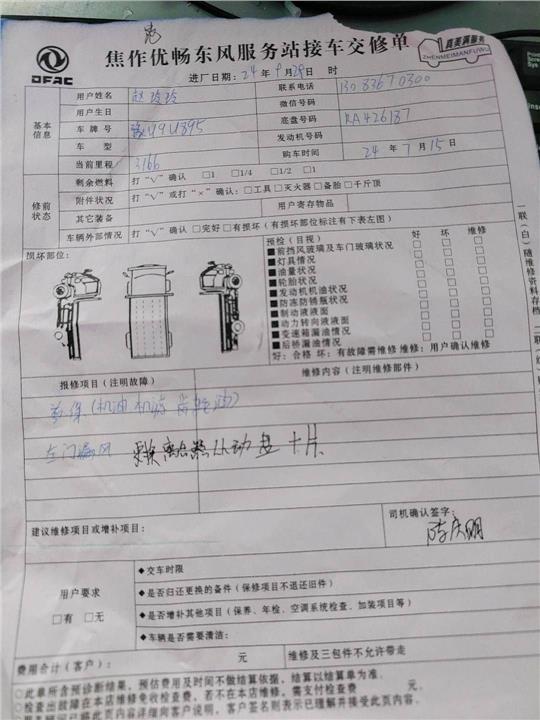 DFAC
焦作优畅东风服务站接车交修单
真美满服务
ZHENMEIMANFUWU
进厂日期：24年9月29日 时
基本信息
用户姓名 赵玲玲 联系电话 13083670300
用户生日 微信号码
车牌号 豫U9U895 底盘号码 RA426187
车型 发动机号码
当前里程 3166 购车时间 24年7月15日
修前状态
剩余燃料 打“√”确认 □1 □1/4 □1/2 □1
附件状况 打“√”或打“×”确认：□工具□灭火器□备胎□千斤顶
其它装备 用户寄存物品
车辆外部情况 打“√”确认 □完好□有损坏（有损坏部位标注有下表左图）
损坏部位：
预检（目视） 好 坏 维修
■前挡风玻璃及车门玻璃状况 □ □ □
■灯具情况 □ □ □
■油量状况 □ □ □
■轮胎状况 □ □ □
■发动机机油状况 □ □ □
■防冻防锈瓶状况 □ □ □
■制动液液面 □ □ □
■动力转向液液面 □ □ □
■变速箱漏油情况 □ □ □
■后桥漏油情况 □ □ □
好：合格 坏：有故障需维修 维修：用户确认维修
报修项目（注明故障） 维修内容（注明维修部件）
首保（机油 机滤
左门漏风 更换离合器从动盘 卡片
建议维修项目或增补项目：
司机确认签字：
庆明
用户要求
□有 □无
◆交车时限
◆是否归还更换的备件（保修项目不退还旧件）
◆是否增补其他项目（保养、年检、空调系统检查、加装项目等）
◆车辆是否需要清洁：
费用合计（客户）： 元 维修及三包件不允许带走
○此单所含预诊断结果，预估费用及时间不做结算依据，结算以结算单为准.
○检查出故障在本店维修免收检查费，若不在本店维修，需支付检查费 元.
已将此页内容详细向客户说明，客户签名则表示已理解并接受此页内容.
一联（白）随维修资料存档
二联